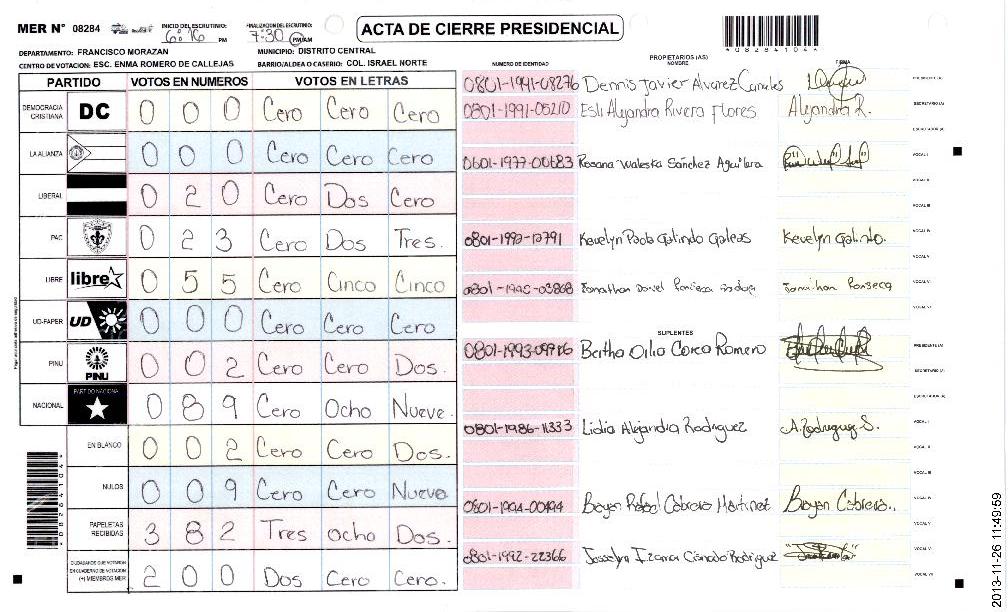 MER N° 08284
INICIO DEL ESCRUTINIO: 6:16 PM
FINALIZACION DEL ESCRUTINIO: 7:30 PM/AM
ACTA DE CIERRE PRESIDENCIAL
DEPARTAMENTO: FRANCISCO MORAZAN
MUNICIPIO: DISTRITO CENTRAL
CENTRO DE VOTACION: ESC. ENMA ROMERO DE CALLEJAS
BARRIO/ALDEA O CASERIO: COL. ISRAEL NORTE
PARTIDO VOTOS EN NUMEROS VOTOS EN LETRAS
DEMOCRACIA CRISTIANA DC 0 0 0 Cero Cero Cero
LA ALIANZA 0 0 0 Cero Cero Cero
LIBERAL 0 2 0 Cero Dos Cero
PAC 0 2 3 Cero Dos Tres.
LIBRE libre 0 5 5 Cero Cinco Cinco
UD-FAPER UD 0 0 0 Cero Cero Cero
PINU PINU 0 0 2 Cero Cero Dos.
NACIONAL PARTIDO NACIONAL 0 8 9 Cero Ocho Nueve.
EN BLANCO 0 0 2 Cero Cero Dos.
NULOS 0 0 9 Cero Cero Nueve
PAPELETAS RECIBIDAS 3 8 2 Tres ocho Dos.
CIUDADANOS QUE VOTARON EN CUADERNO DE VOTACION (+) MIEMBROS MER 2 0 0 Dos Cero Cero.
08284104
NUMERO DE IDENTIDAD PROPIETARIOS (AS) FIRMA
0801-1991-08276 Dennis Javier Alvarez Canales PRESIDENTE (A)
0801-1991-05210 Esli Alejandra Rivera Flores Alejandra R. SECRETARIO (A)
ESCRUTADOR (A)
0601-1977-00683 Rosana Waleska Sanchez Aguilera VOCAL I
VOCAL II
VOCAL III
0801-1992-12791 Kevelyn Paola Galindo Galeas Kevelyn Galindo. VOCAL IV
VOCAL V
0801-1995-03868 Jonathan Daniel Fonseca Jonathan Fonseca VOCAL VI
VOCAL VII
SUPLENTES
0801-1993-09716 Bertha Oilia Corea Romero PRESIDENTE (A)
SECRETARIO (A)
ESCRUTADOR (A)
0801-1986-11333 Lidia Alejandra Rodriguez A. Rodriguez S. VOCAL I
VOCAL II
VOCAL III
0801-1994-00494 Bayan Rafael Cabrera Martinez Bayan Cabrera. VOCAL IV
VOCAL V
0801-1992-22366 Josselyn Izamar Rodriguez VOCAL VI
VOCAL VII
08284104
2013-11-26 11:49:59